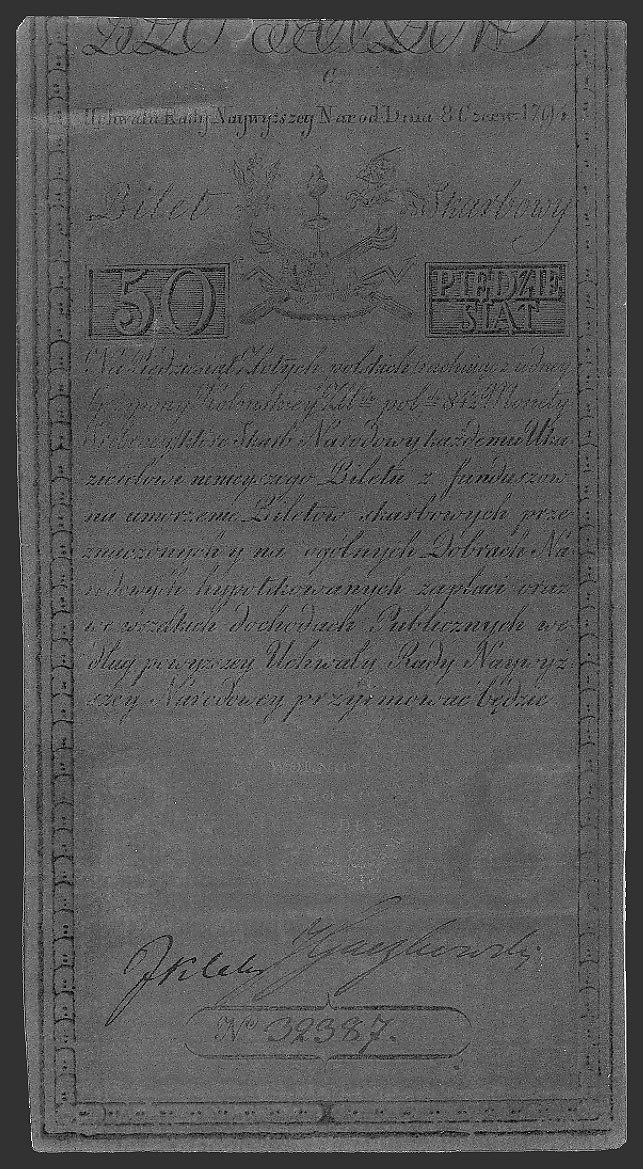 C
Uchwała Rady Naywyższey Narod: Dnia 8 Czerw: 1794
Bilet Skarbowy
50
PIĘDZIE
SIĄT
Na Piędziesiąt Złotych polskich rachując z iedney
Grzywny Kolońskiey Zł. pol. 84½ Monety
Srebrney które Skarb Narodowy każdemu Oka
zicielowi ninieyszego Biletu z funduszow
na umorzenie Biletow skarbowych prze
znaczonych y na ogólnych Dobrach Na
rodowych hypotikowanych zapłaci oraz
we wszelkich dochodach Publicznych we
dług powyższey Uchwały Rady Naywyż
szey Narodowey przyimować będzie
WOLNOŚC
No 32387.